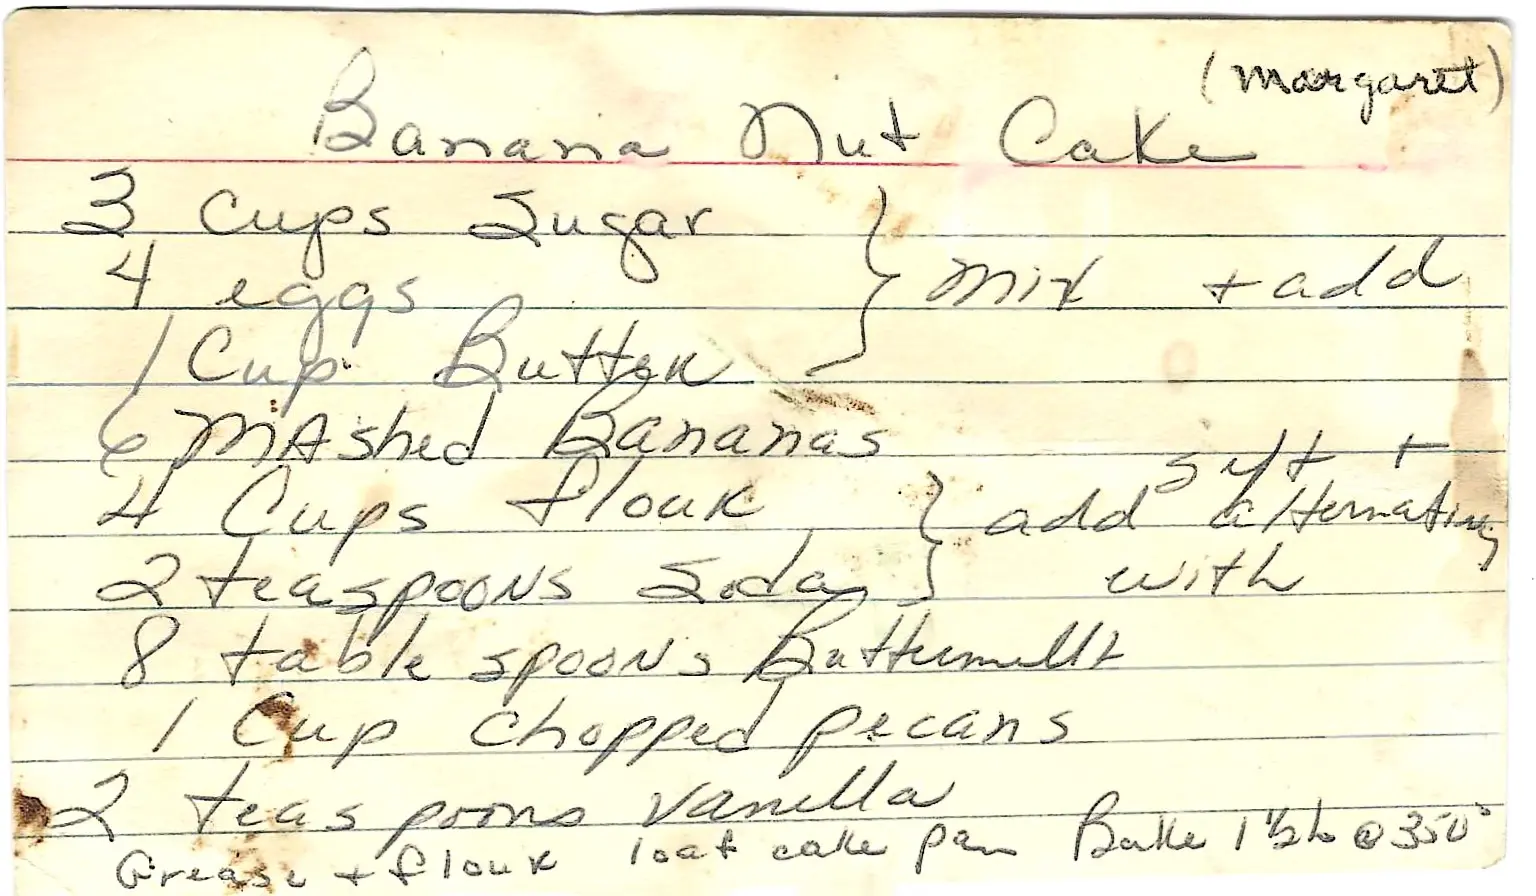 (Margaret)
Banana Nut Cake
3 Cups Sugar
4 eggs } Mix + add
1 Cup Butter
6 MAshed Bananas
4 Cups flour } Sift + add alternating
2 teaspoons Soda with
8 table spoons Buttermilk
1 Cup chopped pecans
2 teaspoons vanilla
Grease + flour loaf cake pan Bake 1 1/2 h @ 350°